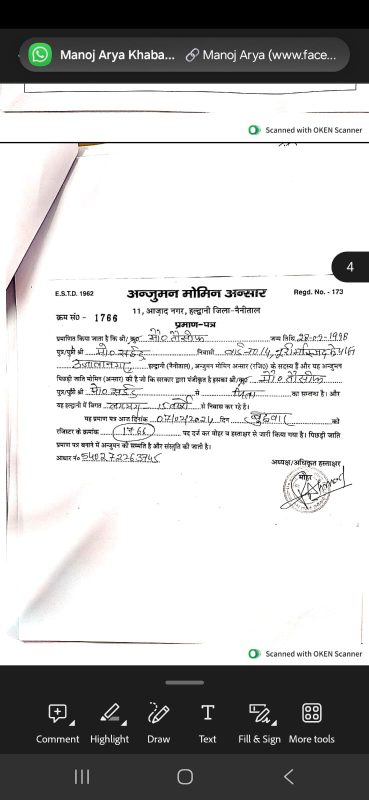 Manoj Arya Khaba... Manoj Arya (www.face...
Scanned with OKEN Scanner
4
E.S.T.D. 1962 अन्जुमन मोमिन अन्सार Regd. No. - 173
11, आज़ाद नगर, हल्द्वानी जिला-नैनीताल
क्रम सं० - 1766
प्रमाण-पत्र
प्रमाणित किया जाता है कि श्री/कु० मो० तौसीफ जन्म तिथि 28-07-1998
पुत्र/पुत्री श्री मो० सईद निवासी वार्ड नं० 14, नूरी मस्जिद के पास
हल्द्वानी (नैनीताल), अन्जुमन मोमिन अन्सार (रजि०) के सदस्य हैं और यह अन्जुमन
पिछड़ी जाति मोमिन (अन्सार) की है जो कि सरकार द्वारा पंजीकृत है इसका श्री/कु० मो० तौसीफ
पुत्र/पुत्री श्री मो० सईद से पिता का सम्बन्ध है। और
यह हल्द्वानी में विगत लगभग 15 वर्षों से निवास कर रहे हैं।
यह प्रमाण पत्र आज दिनांक 07/02/2024 दिन बुद्धवार को
रजिस्टर के क्रमांक 1766 पद दर्ज कर मोहर व हस्ताक्षर से जारी किया गया है। पिछड़ी जाति
प्रमाण पत्र बनाने में अन्जुमन की सम्मति है और संस्तुति की जाती है।
आधार नं०
अध्यक्ष/अधिकृत हस्ताक्षर
मोहर
Scanned with OKEN Scanner
Comment Highlight Draw Text Fill & Sign More tools